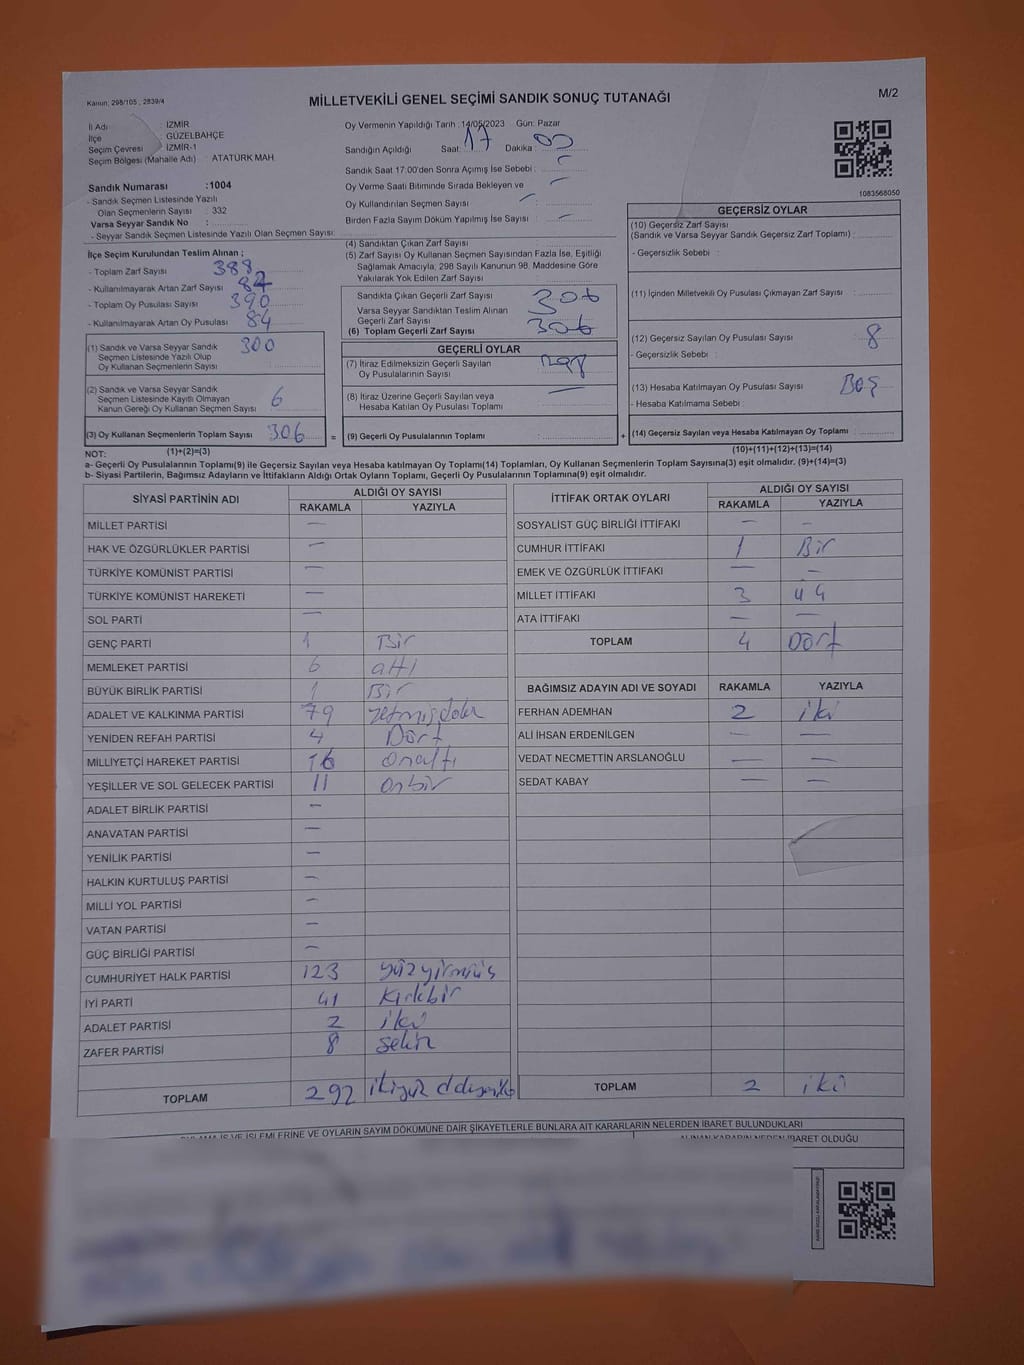 Kanun; 298/105 , 2839/4
MİLLETVEKİLİ GENEL SEÇİMİ SANDIK SONUÇ TUTANAĞI
M/2
İl Adı : İZMİR
İlçe : GÜZELBAHÇE
Seçim Çevresi : İZMİR-1
Seçim Bölgesi (Mahalle Adı) : ATATÜRK MAH.
Oy Vermenin Yapıldığı Tarih : 14/05/2023 Gün: Pazar
Sandığın Açıldığı Saat: 17 Dakika: 00
Sandık Saat 17.00'den Sonra Açımış İse Sebebi : -
Oy Verme Saati Bitiminde Sırada Bekleyen ve -
Oy Kullandırılan Seçmen Sayısı : -
Birden Fazla Sayım Döküm Yapılmış İse Sayısı : -
1083568050
Sandık Numarası :1004
- Sandık Seçmen Listesinde Yazılı
Olan Seçmenlerin Sayısı : 332
Varsa Seyyar Sandık No :
- Seyyar Sandık Seçmen Listesinde Yazılı Olan Seçmen Sayısı:
İlçe Seçim Kurulundan Teslim Alınan ;
- Toplam Zarf Sayısı : 388
- Kullanılmayarak Artan Zarf Sayısı : 82
- Toplam Oy Pusulası Sayısı : 390
- Kullanılmayarak Artan Oy Pusulası : 84
(1) Sandık ve Varsa Seyyar Sandık 300
Seçmen Listesinde Yazılı Olup
Oy Kullanan Seçmenlerin Sayısı :
(2) Sandık ve Varsa Seyyar Sandık
Seçmen Listesinde Kayıtlı Olmayan 6
Kanun Gereği Oy Kullanan Seçmen Sayısı :
(3) Oy Kullanan Seçmenlerin Toplam Sayısı : 306
(4) Sandıktan Çıkan Zarf Sayısı :
(5) Zarf Sayısı Oy Kullanan Seçmen Sayısından Fazla İse, Eşitliği
Sağlamak Amacıyla, 298 Sayılı Kanunun 98. Maddesine Göre
Yakılarak Yok Edilen Zarf Sayısı :
Sandıkta Çıkan Geçerli Zarf Sayısı : 306
Varsa Seyyar Sandıktan Teslim Alınan
Geçerli Zarf Sayısı :
(6) Toplam Geçerli Zarf Sayısı : 306
GEÇERLİ OYLAR
(7) İtiraz Edilmeksizin Geçerli Sayılan 298
Oy Pusulalarının Sayısı :
(8) İtiraz Üzerine Geçerli Sayılan veya -
Hesaba Katılan Oy Pusulası Toplamı :
= (9) Geçerli Oy Pusulalarının Toplamı : +
GEÇERSİZ OYLAR
(10) Geçersiz Zarf Sayısı
(Sandık ve Varsa Seyyar Sandık Geçersiz Zarf Toplamı) :
- Geçersizlik Sebebi :
(11) İçinden Milletvekili Oy Pusulası Çıkmayan Zarf Sayısı :
(12) Geçersiz Sayılan Oy Pusulası Sayısı : 8
- Geçersizlik Sebebi :
(13) Hesaba Katılmayan Oy Pusulası Sayısı : Boş
- Hesaba Katılmama Sebebi :
(14) Geçersiz Sayılan veya Hesaba Katılmayan Oy Toplamı :
NOT: (1)+(2)=(3) (10)+(11)+(12)+(13)=(14)
a- Geçerli Oy Pusulalarının Toplamı(9) ile Geçersiz Sayılan veya Hesaba katılmayan Oy Toplamı(14) Toplamları, Oy Kullanan Seçmenlerin Toplam Sayısına(3) eşit olmalıdır. (9)+(14)=(3)
b- Siyasi Partilerin, Bağımsız Adayların ve İttifakların Aldığı Ortak Oyların Toplamı, Geçerli Oy Pusulalarının Toplamına(9) eşit olmalıdır.
SİYASİ PARTİNİN ADI ALDIĞI OY SAYISI
RAKAMLA YAZIYLA
MİLLET PARTİSİ -
HAK VE ÖZGÜRLÜKLER PARTİSİ -
TÜRKİYE KOMÜNİST PARTİSİ -
TÜRKİYE KOMÜNİST HAREKETİ -
SOL PARTİ -
GENÇ PARTİ 1 Bir
MEMLEKET PARTİSİ 6 altı
BÜYÜK BİRLİK PARTİSİ 1 Bir
ADALET VE KALKINMA PARTİSİ 79
YENİDEN REFAH PARTİSİ 4 Dört
MİLLİYETÇİ HAREKET PARTİSİ 16 onaltı
YEŞİLLER VE SOL GELECEK PARTİSİ 11 onbir
ADALET BİRLİK PARTİSİ -
ANAVATAN PARTİSİ -
YENİLİK PARTİSİ -
HALKIN KURTULUŞ PARTİSİ -
MİLLİ YOL PARTİSİ -
VATAN PARTİSİ -
GÜÇ BİRLİĞİ PARTİSİ -
CUMHURİYET HALK PARTİSİ 123
İYİ PARTİ 41 kırkbir
ADALET PARTİSİ 2 iki
ZAFER PARTİSİ 8 sekiz
TOPLAM 292
İTTİFAK ORTAK OYLARI ALDIĞI OY SAYISI
RAKAMLA YAZIYLA
SOSYALİST GÜÇ BİRLİĞİ İTTİFAKI - -
CUMHUR İTTİFAKI 1 Bir
EMEK VE ÖZGÜRLÜK İTTİFAKI - -
MİLLET İTTİFAKI 3 üç
ATA İTTİFAKI - -
TOPLAM 4 Dört
BAĞIMSIZ ADAYIN ADI VE SOYADI RAKAMLA YAZIYLA
FERHAN ADEMHAN 2 iki
ALİ İHSAN ERDENİLGEN - -
VEDAT NECMETTİN ARSLANOĞLU - -
SEDAT KABAY - -
TOPLAM 2 iki
İŞ VE İŞLEMLERİNE VE OYLARIN SAYIM DÖKÜMÜNE DAİR ŞİKAYETLERLE BUNLARA AİT KARARLARIN NELERDEN İBARET BULUNDUKLARI
ALINAN KARARIN NEDEN İBARET OLDUĞU